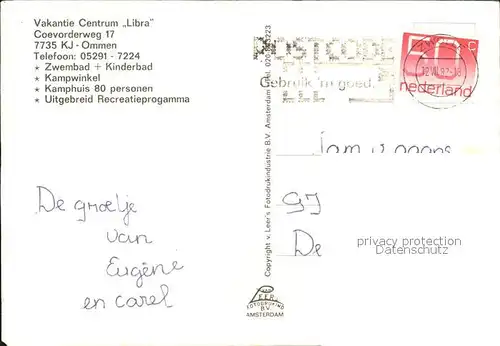 Vakantie Centrum „Libra"
Coevorderweg 17
7735 KJ - Ommen
Telefoon: 05291 - 7224
* Zwembad + Kinderbad
* Kampwinkel
* Kamphuis 80 personen
* Uitgebreid Recreatieprogamma
De groetje
van
Eugène
en carel
Copyright v. Leer's Fotodrukindustrie B.V. Amsterdam Tel. 020
POSTCODE
Gebruik 'm goed.
50 c
nederland
GJ
De
privacy protection
Datenschutz
VAN
LEER
FOTODRUKIND
B.V.
AMSTERDAM